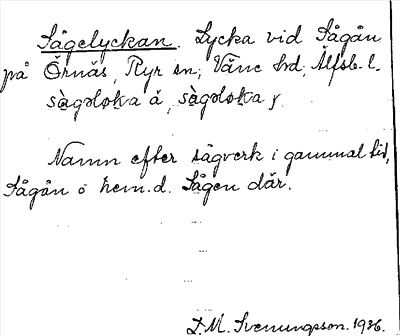 Sågelyckan. Lycka vid Sågån
på Örnäs, Ryr sn, Väne hd, Älfsb. l.
sàgəlo̱ka å, sàgəlo̱ka y
Namn efter sågverk i gammal tid,
Sågån o hem.d. Sågen där.
D.M. Svenungsson. 1926.